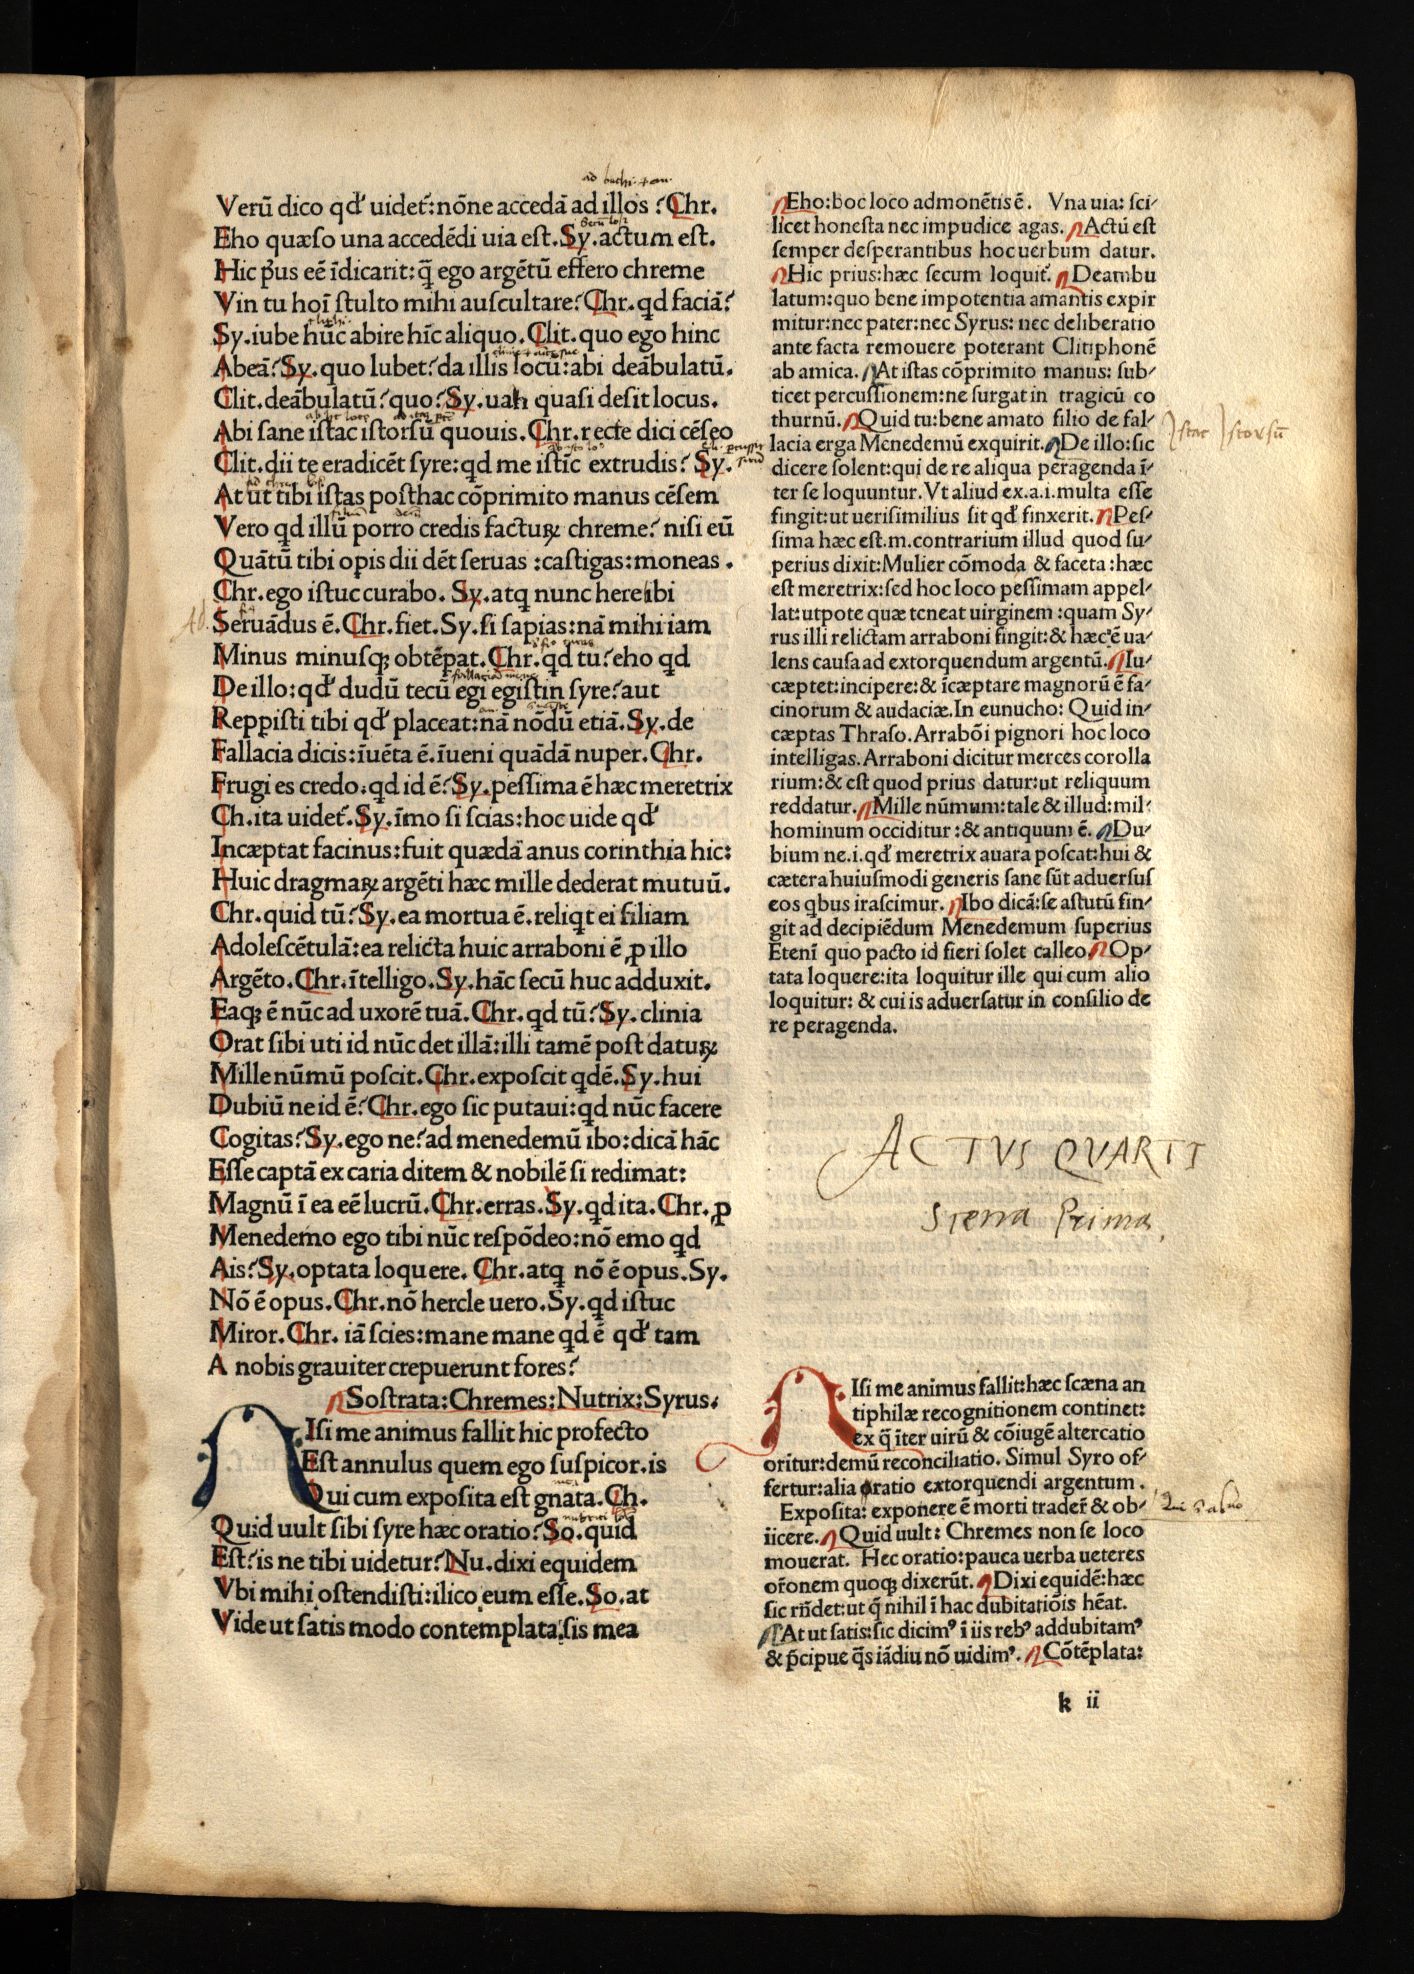 Verū dico qđ uidet᷑:nōne accedā ad illos ? Chr.
Eho quæso una accedēdi uia est. Sy. actum est.
Hic p̄us eē īdicarit: q̄ ego argētū effero chreme
Vin tu hoī stulto mihi auscultare? Chr. qd faciā?
Sy. iube hūc abire hīc aliquo. Clit. quo ego hinc
Abeā? Sy. quo lubet? da illis locū: abi deābulatū.
Clit. deābulatū? quo? Sy. uah quasi desit locus.
Abi sane istac istorsū quouis. Chr. recte dici cēseo
Clit. dii te eradicēt syre: qd me istīc extrudis? Sy.
At ut tibi istas posthac cōprimito manus cēsem
Vero qd illū porro credis factuꝝ chreme? nisi eū
Quātū tibi opis dii dēt seruas :castigas:moneas .
Chr. ego istuc curabo. Sy. atq nunc here tibi
Seruādus ē. Chr. fiet. Sy. si sapias: nā mihi iam
Minus minusqꝫ obtēpat. Chr. qd tu? eho qd
De illo: qđ dudū tecū egi egistin syre? aut
Repp̱isti tibi qđ placeat: nā nōdū etiā. Sy. de
Fallacia dicis: īuēta ē. īueni quādā nuper. Chr.
Frugi es credo. qd id ē? Sy. pessima ē hæc meretrix
Ch. ita uidet᷑. Sy. īmo si scias: hoc uide qđ
Incæptat facinus: fuit quædā anus corinthia hic:
Huic dragmaꝝ argēti hæc mille dederat mutuū.
Chr. quid tū? Sy. ea mortua ē. reliqt ei filiam
Adolescētulā: ea relicta huic arraboni ē ꝓ illo
Argēto. Chr. ītelligo. Sy. hāc secū huc adduxit.
Eaqꝫ ē nūc ad uxorē tuā. Chr. qd tū? Sy. clinia
Orat sibi uti id nūc det illā: illi tamē post datuꝝ
Mille nūmū poscit. Chr. exposcit qdē. Sy. hui
Dubiū ne id ē? Chr. ego sic putaui: qd nūc facere
Cogitas? Sy. ego ne? ad menedemū ibo: dicā hāc
Esse captā ex caria ditem & nobilē si redimat:
Magnū ī ea eē lucrū. Chr. erras. Sy. qd ita. Chr. ꝓ
Menedemo ego tibi nūc respōdeo: nō emo qd
Ais? Sy. optata loquere. Chr. atq nō ē opus. Sy.
Nō ē opus. Chr. nō hercle uero. Sy. qd istuc
Miror. Chr. iā scies: mane mane qd ē qđ tam
A nobis grauiter crepuerunt fores?
Sostrata: Chremes: Nutrix: Syrus.
NIsi me animus fallit hic profecto
Est annulus quem ego suspicor. is
Qui cum exposita est gnata. Ch.
Quid uult sibi syre hæc oratio? So. quid
Est? is ne tibi uidetur? Nu. dixi equidem
Vbi mihi ostendisti: ilico eum esse. So. at
Vide ut satis modo contemplata sis mea
Eho: hoc loco admonētis ē. Vna uia: sci-
licet honesta nec impudice agas. Actū est
semper desperantibus hoc uerbum datur.
Hic prius: hæc secum loquit᷑. Deambu
latum: quo bene impotentia amantis expir
mitur: nec pater: nec Syrus: nec deliberatio
ante facta remouere poterant Clitiphonē
ab amica. At istas cōprimito manus: sub-
ticet percussionem: ne surgat in tragicū co
thurnū. Quid tu: bene amato filio de fal-
lacia erga Menedemū exquirit. De illo: sic
dicere solent: qui de re aliqua peragenda ī-
ter se loquuntur. Vt aliud ex.a.i. multa esse
fingit: ut uerisimilius sit qđ finxerit. Pes-
sima hæc est.m. contrarium illud quod su-
perius dixit: Mulier cōmoda & faceta: hæc
est meretrix: sed hoc loco pessimam appel-
lat: utpote quæ teneat uirginem: quam Sy-
rus illi relictam arraboni fingit: & hæc ē ua-
lens causa ad extorquendum argentū. Iu-
cæptet: incipere: & īcæptare magnorū ē fa-
cinorum & audaciæ. In eunucho: Quid in-
cæptas Thraso. Arrabōi pignori hoc loco
intelligas. Arraboni dicitur merces corolla
rium: & est quod prius datur: ut reliquum
reddatur. Mille nūmum: tale & illud: mil-
hominum occiditur: & antiquum ē. Du-
bium ne.i. qđ meretrix auara poscat: hui &
cætera huiusmodi generis sane sūt aduersus
eos qbus irascimur. Ibo dicā: se astutū fin-
git ad decipiēdum Menedemum superius
Etenī quo pacto id fieri solet calleo. Op-
tata loquere: ita loquitur ille qui cum alio
loquitur: & cui is aduersatur in consilio de
re peragenda.
Istac Istorsū
ACTVS QVARTI
Scena Prima
NIsi me animus fallit: hæc scæna an
tiphilæ recognitionem continet:
ex q̄ īter uirū & cōiugē altercatio
oritur: demū reconciliatio. Simul Syro of-
fertur: alia oratio extorquendi argentum.
Exposita: exponere ē morti trader᷑ & ob-
iicere. Quid uult: Chremes non se loco
mouerat. Hec oratio: pauca uerba ueteres
or̄onem quoqꝫ dixerūt. Dixi equidē: hæc
sic rñdet: ut q̄ nihil ī hac dubitatiōis hēat.
At ut satis: sic dicimꝰ ī iis rebꝰ addubitamꝰ
& p̄cipue q̄s iādiu nō uidimꝰ. Cōtēplata:
k ii